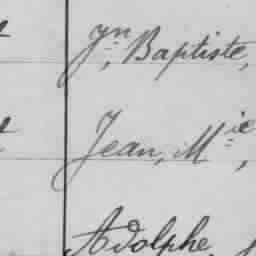 Jn, Baptiste,
Jean, Mie,
Adolphe